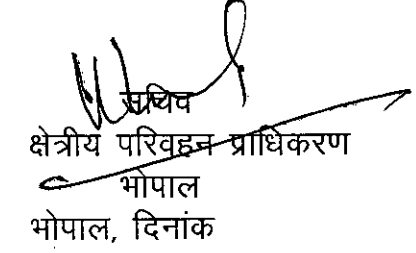 सचिव
क्षेत्रीय परिवहन प्राधिकरण
भोपाल
भोपाल, दिनांक